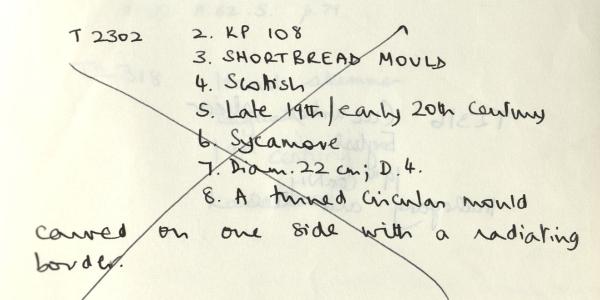 T 2302 2. KP 108
3. SHORTBREAD MOULD
4. Scottish
5. Late 19th/early 20th Century
6. Sycamore
7. Diam. 22 cm; D. 4.
8. A turned circular mould
carved on one side with a radiating
border.